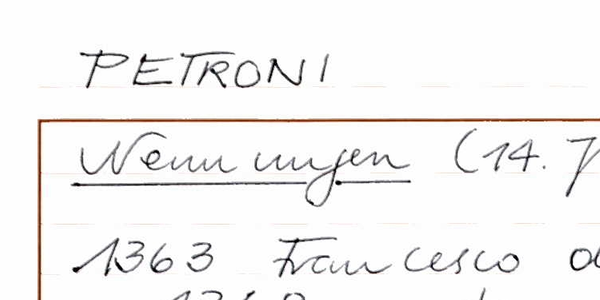 PETRONI
Nennungen (14. J
1363 Francesco d